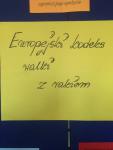 Europejski kodeks
walki
z rakiem